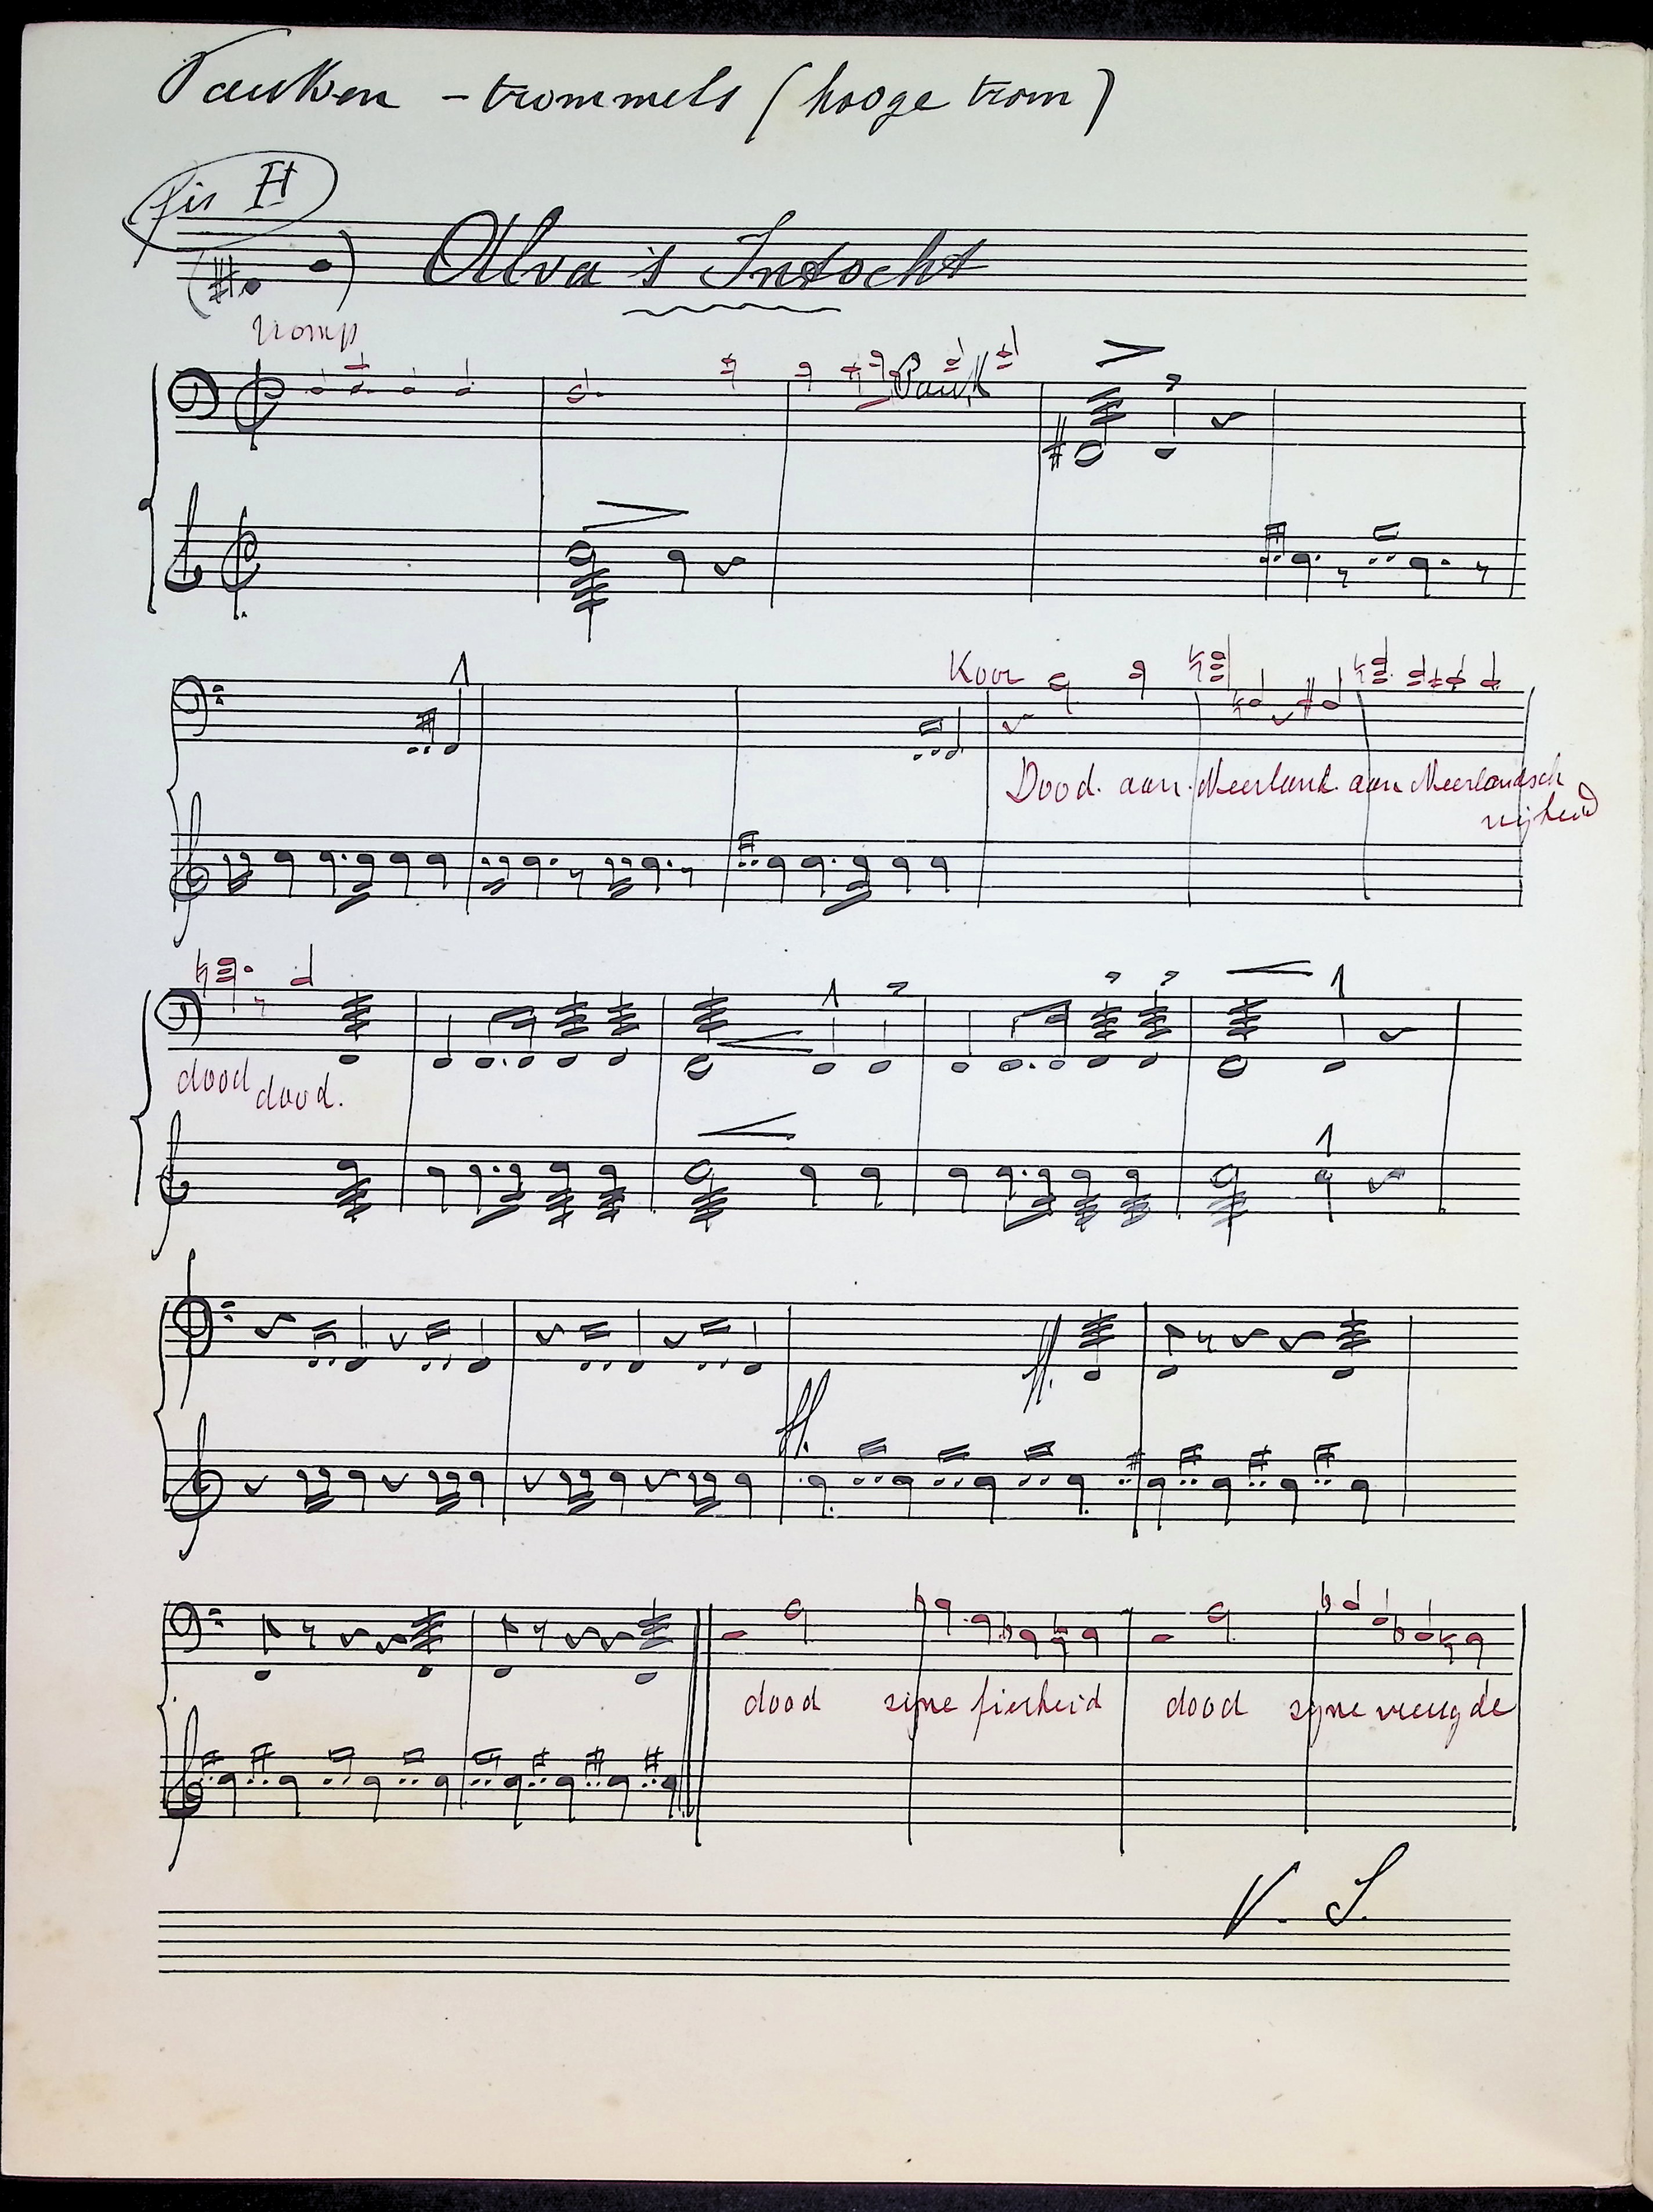 Pauken - trommels (hooge trom)
fis H
Alva's Intocht
tromp
Pauk
Koor
Dood. aan. Neerland. aan Neerlandsch
vrijheid
dood dood.
ff.
ff.
dood zijne fierheid dood zijne vreugde
V. S.